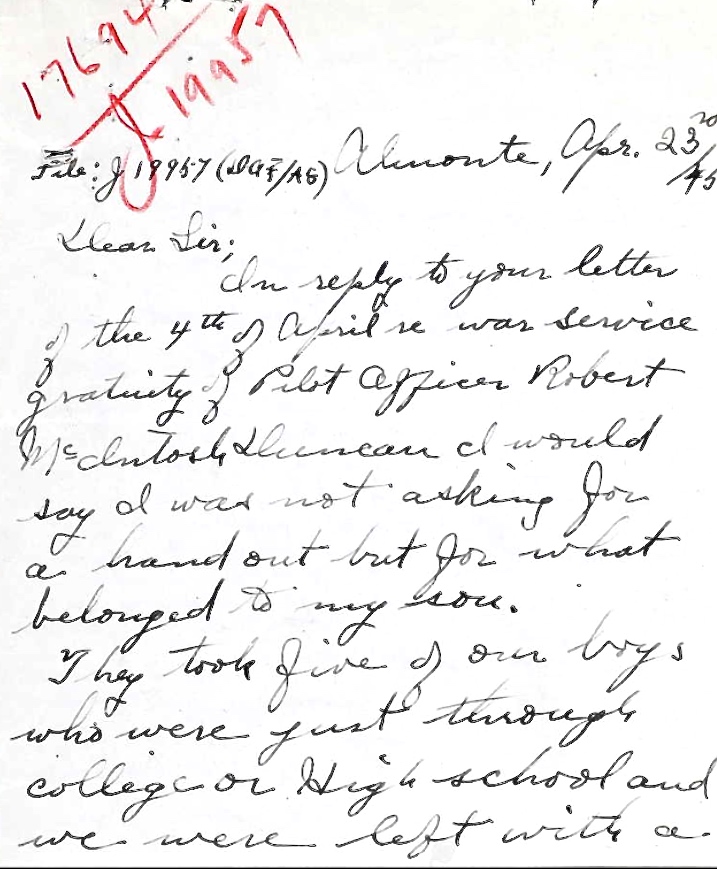 17694
J 19957
File: J 19957 (DAF/AG) Almonte, Apr. 23rd
/45
Dear Sir;
In reply to your letter
of the 4th of April re war service
gratuity of Pilot Officer Robert
McIntosh Duncan I would
say I was not asking for
a hand out but for what
belonged to my son.
They took five of our boys
who were just through
college or High school and
we were left with a